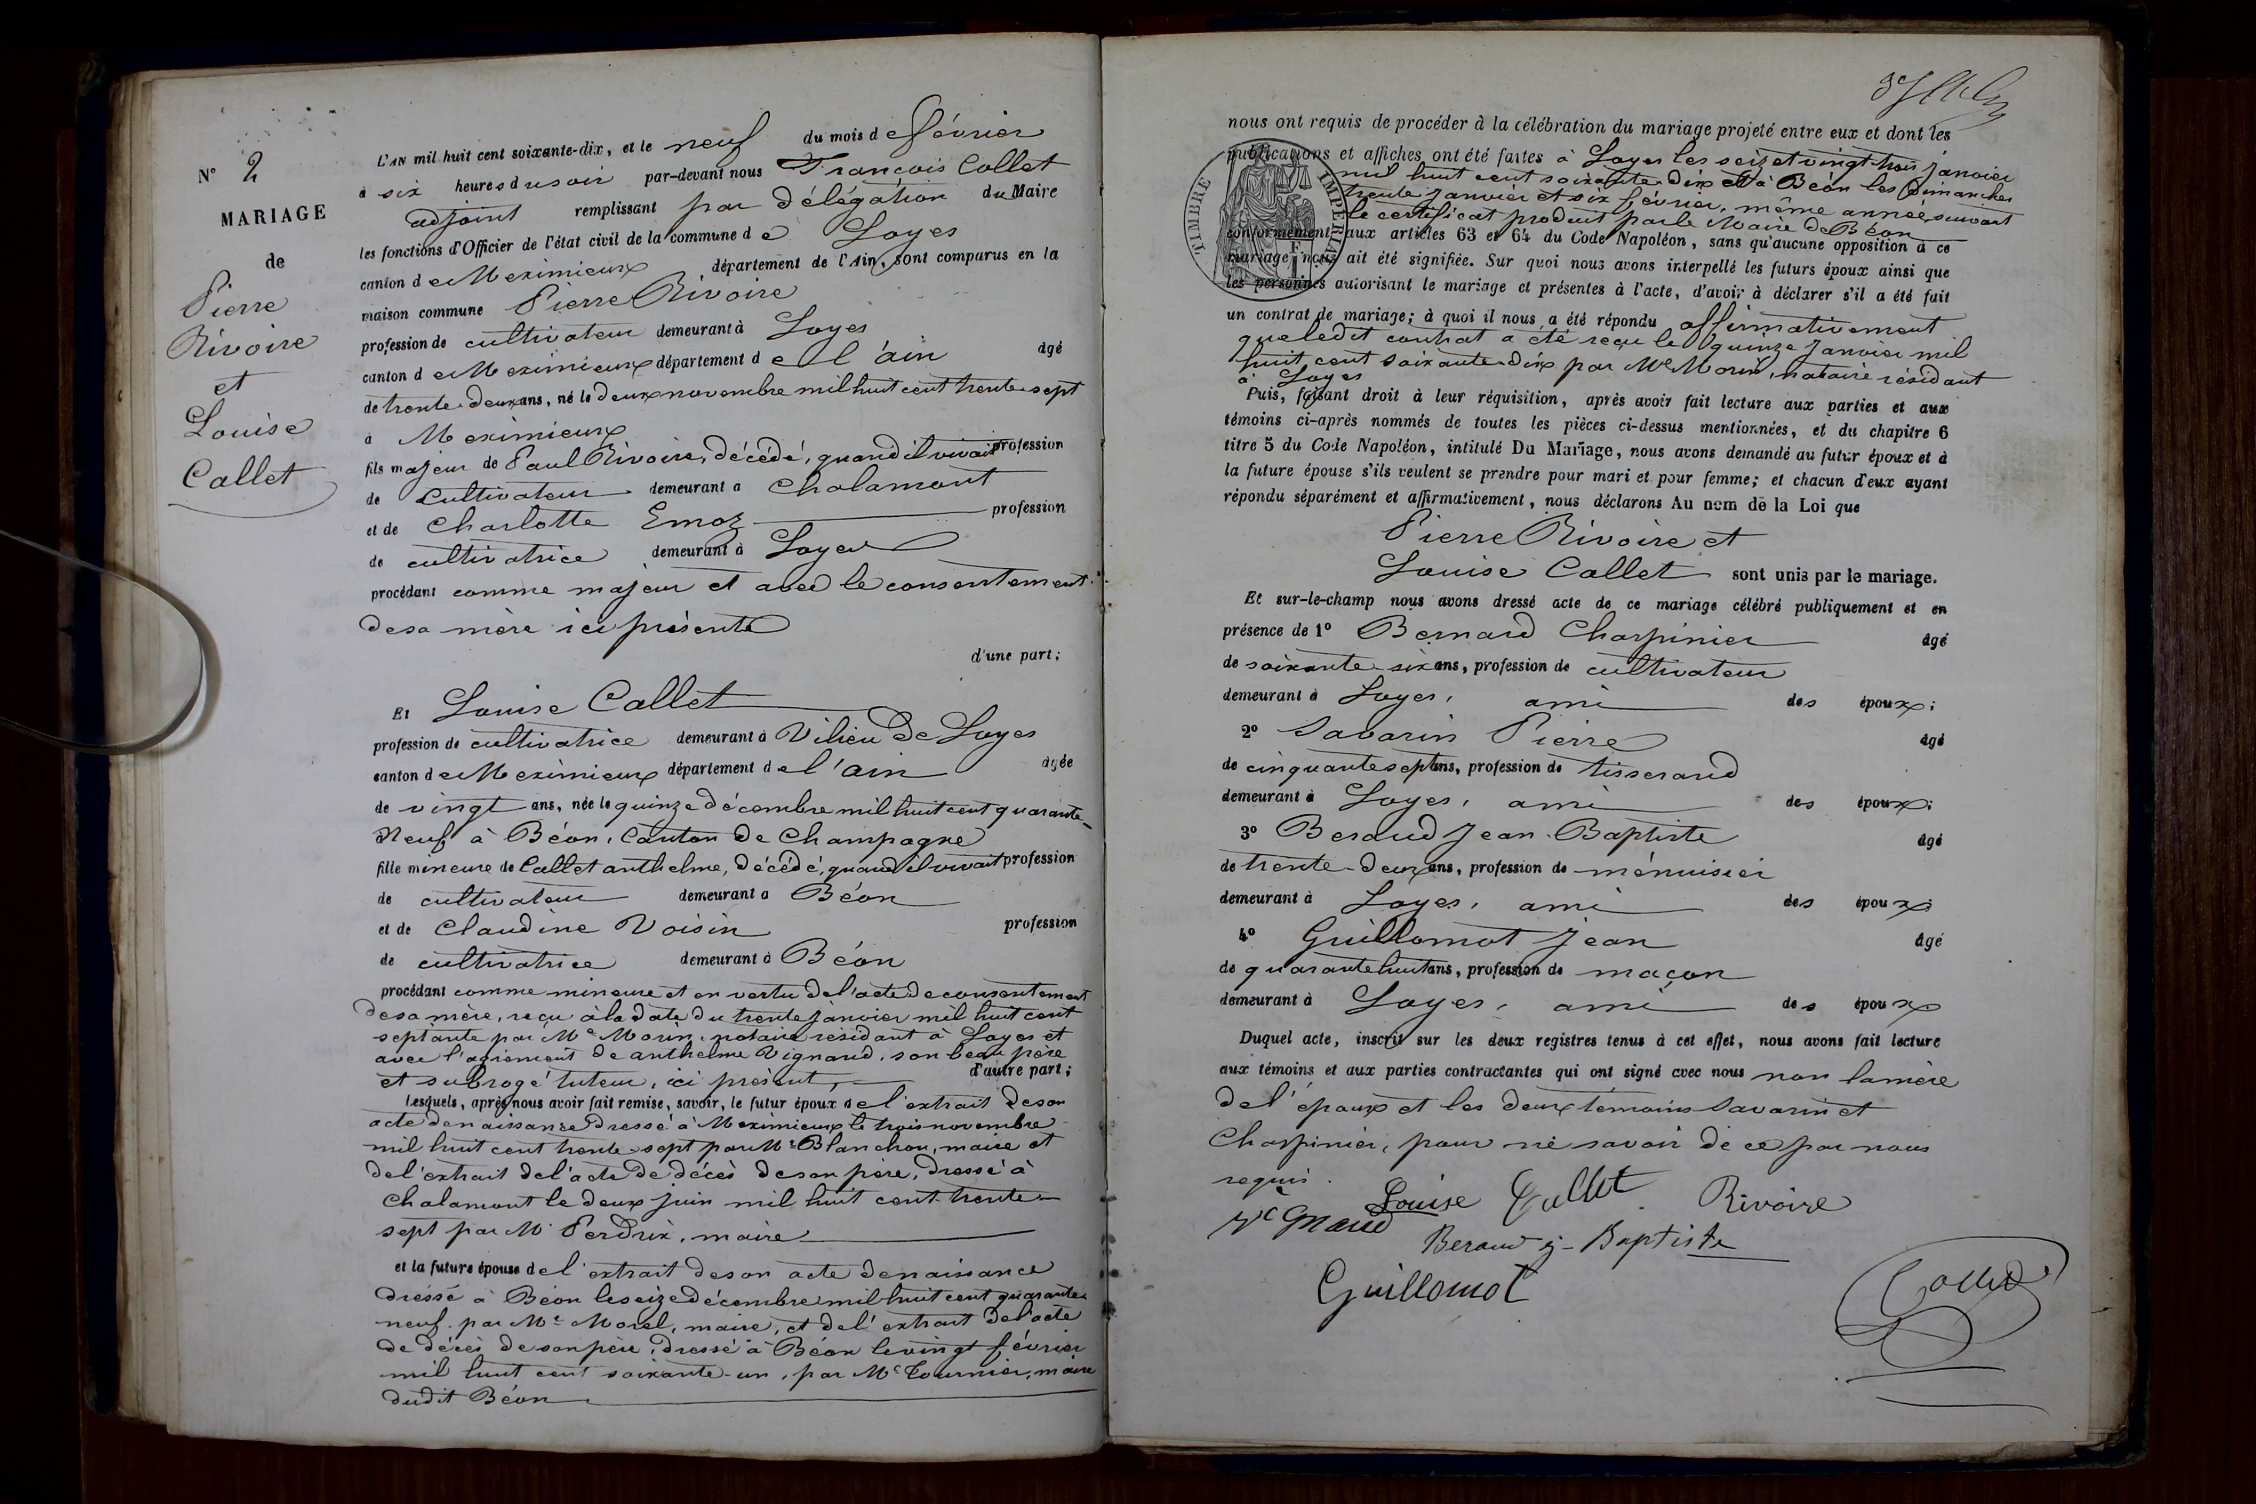 N° 2
MARIAGE
de
Pierre
Rivoire
et
Louise
Callet
L'AN mil huit cent soixante-dix, et le neuf du mois de février
à six heures du soir par-devant nous François Collet
adjoint remplissant par délégation du Maire
les fonctions d'Officier de l'état civil de la commune de Loyes
canton de Meximieux, département de l'Ain, sont comparus en la
maison commune Pierre Rivoire
profession de cultivateur demeurant à Loyes
canton de Meximieux département de l'ain âgé
de trente-deux ans, né le deux novembre mil huit cent trente sept
à Meximieux
fils majeur de Paul Rivoire, décédé, quand il vivait profession
de cultivateur demeurant à Chalamont
et de Charlotte Emoz profession
de cultivatrice demeurant à Loyes
procédant comme majeur et avec le consentement
de sa mère ici présente
d'une part;
Et Louise Callet
profession de cultivatrice demeurant à Vilieu De Loyes
canton de Meximieux département de l'ain âgée
de vingt ans, née le quinze décembre mil huit cent quarante-
Neuf à Béon, Canton de Champagne
fille mineure de Callet anthelme, décédé, quand il vivait profession
de cultivateur demeurant à Béon
et de Claudine Voisin profession
de cultivatrice demeurant à Béon
procédant comme mineure et en vertu de l'acte de consentement
de sa mère, reçu à la date du trente janvier mil huit cent
septante par Me Morin, notaire résidant à Loyes et
avec l'agrément de anthelme Vignaud, son beau père
et subrogé tuteur, ici présent, d'autre part;
Lesquels, après nous avoir fait remise, savoir, le futur époux de l'extrait de son
acte de naissance dressé à Meximieux le trois novembre
mil huit cent trente sept par Mr Blanchon, maire et
de l'extrait de l'acte de décès de son père, dressé à
Chalamont le deux juin mil huit cent trente-
sept par Mr Perdrix, maire
et la future épouse de l'extrait de son acte de naissance
dressé à Béon le seize décembre mil huit cent quarante
neuf par Mr Morel, maire, et de l'extrait de l'acte
de décès de son père, dressé à Béon le vingt février
mil huit cent soixante-un, par Mr Tournier, maire
dudit Béon
nous ont requis de procéder à la célébration du mariage projeté entre eux et dont les
publications et affiches ont été faites à Loyes les seize et vingt-trois janvier
mil huit cent soixante-dix et à Béon les Dimanches
trente janvier et six février, même année, suivant
le certificat produit par le Maire de Béon
conformément aux articles 63 et 64 du Code Napoléon, sans qu'aucune opposition à ce
mariage nous ait été signifiée. Sur quoi nous avons interpellé les futurs époux ainsi que
les personnes autorisant le mariage et présentes à l'acte, d'avoir à déclarer s'il a été fait
un contrat de mariage; à quoi il nous a été répondu affirmativement
que ledit contrat a été reçu le quinze janvier mil
huit cent soixante-dix par Me Morin, notaire résidant
à Loyes
TIMBRE IMPERIAL
Puis, faisant droit à leur réquisition, après avoir fait lecture aux parties et aux
témoins ci-après nommés de toutes les pièces ci-dessus mentionnées, et du chapitre 6
titre 5 du Code Napoléon, intitulé Du Mariage, nous avons demandé au futur époux et à
la future épouse s'ils veulent se prendre pour mari et pour femme; et chacun d'eux ayant
répondu séparément et affirmativement, nous déclarons Au nom de la Loi que
Pierre Rivoire et
Louise Callet sont unis par le mariage.
Et sur-le-champ nous avons dressé acte de ce mariage célébré publiquement et en
présence de 1° Bernard Charpinier âgé
de soixante-six ans, profession de cultivateur
demeurant à Loyes, ami des époux;
2° Savarin Pierre âgé
de cinquante sept ans, profession de tisserand
demeurant à Loyes, ami des époux;
3° Beraud Jean-Baptiste âgé
de trente-deux ans, profession de ménuisier
demeurant à Loyes, ami des époux;
4° Guillomot Jean âgé
de quarante huit ans, profession de maçon
demeurant à Loyes, ami des époux
Duquel acte, inscrit sur les deux registres tenus à cet effet, nous avons fait lecture
aux témoins et aux parties contractantes qui ont signé avec nous non la mère
de l'époux et les deux témoins Savarin et
Charpinier, pour ne savoir de ce par nous
requis.
Louise Callet Rivoire
Vignaud
Beraud j-Baptiste
Guillomot
Collet